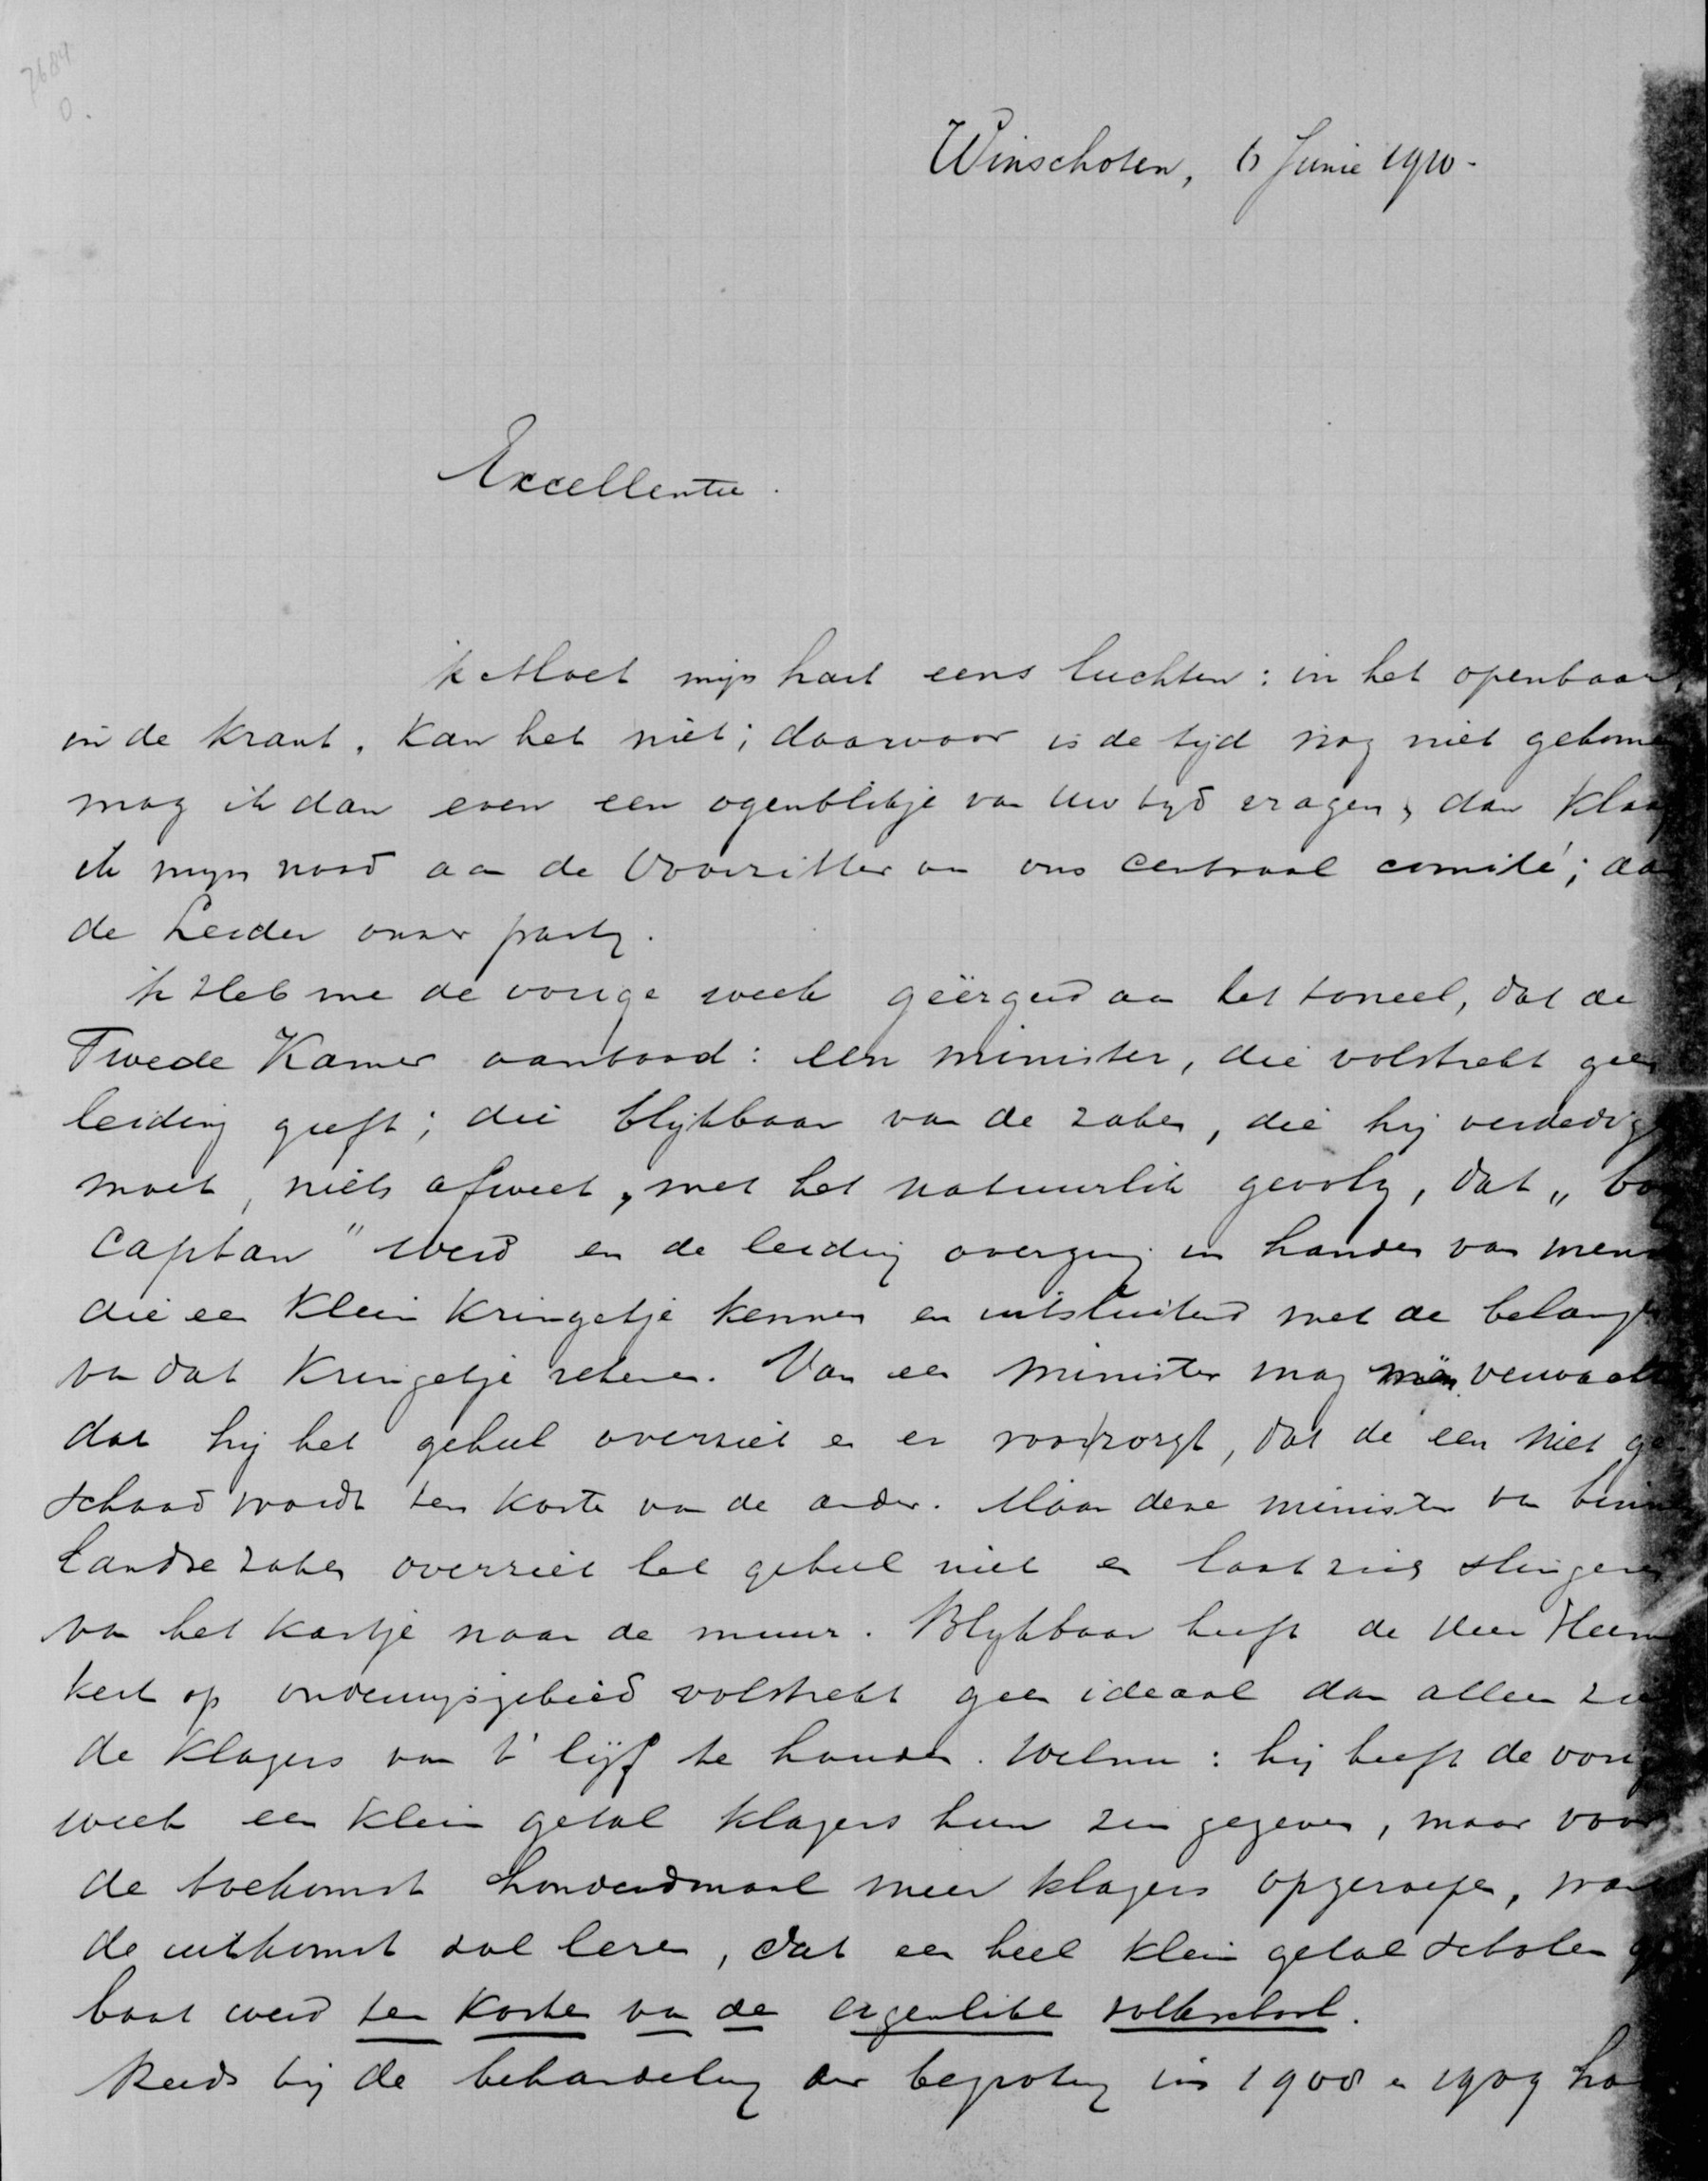 7684
0.
Winschoten, 6 Junie 1910.
Excellentie.
ik Moet mijn hart eens luchten: in het openbaar,
in de krant, kan het niet; daarvoor is de tijd nog niet gekome
mag ik dan even een ogenblikje van Uw tijd vragen, dan klaag
ik mijn nood aan de Voorzitter van ons centraal comité; aa
de Leider onzer partij.
ik Heb me de vorige week geërgerd aan het toneel, dat de
Twede Kamer aanbood: een minister, die volstrekt geen
leiding geeft; die blijkbaar van de zaken, die hij verdedig
moet, niets afweet, met het natuurlik gevolg, dat „ boy
captan" werd en de leiding overging in handen van mens
die een klein kringetje kennen en uitsluitend met de belange
van dat kringetje rekenen. Van een minister mag men verwacht
dat hij het geheel overziet en er voor zorgt, dat de een niet ge-
schaad wordt ten koste van de ander. Maar deze minister van binne
landse zaken overziet het geheel niet en laat zich slingeren
van het kastje naar de muur. Blijkbaar heeft de Heer Heems
kerk op onderwijsgebied volstrekt geen ideaal dan alleen zic
de klagers van 't lijf te houden. Welnu: hij heeft de vorig
week een klein getal klagers hun zin gegeven, maar voor
de toekomst honderdmaal meer klagers opgeroepen, wan
de uitkomst zal leren, dat een heel klein getal scholen ge
baat werd ten koste van de eigenlike volksschool.
Reeds bij de behandeling der begroting in 1908 en 1909 ha